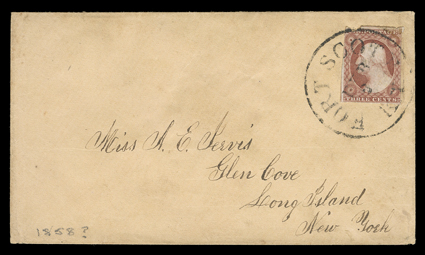 FORT SCOTT
THREE CENTS
Miss A. E. Servis
Glen Cove
Long Island
New York
1858?